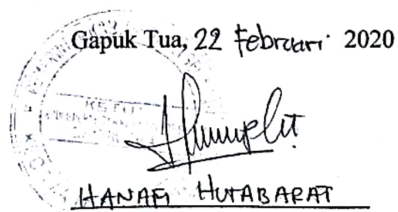 Gapuk Tua, 22 Februari 2020
KETUA
HANAFI HUTABARAT